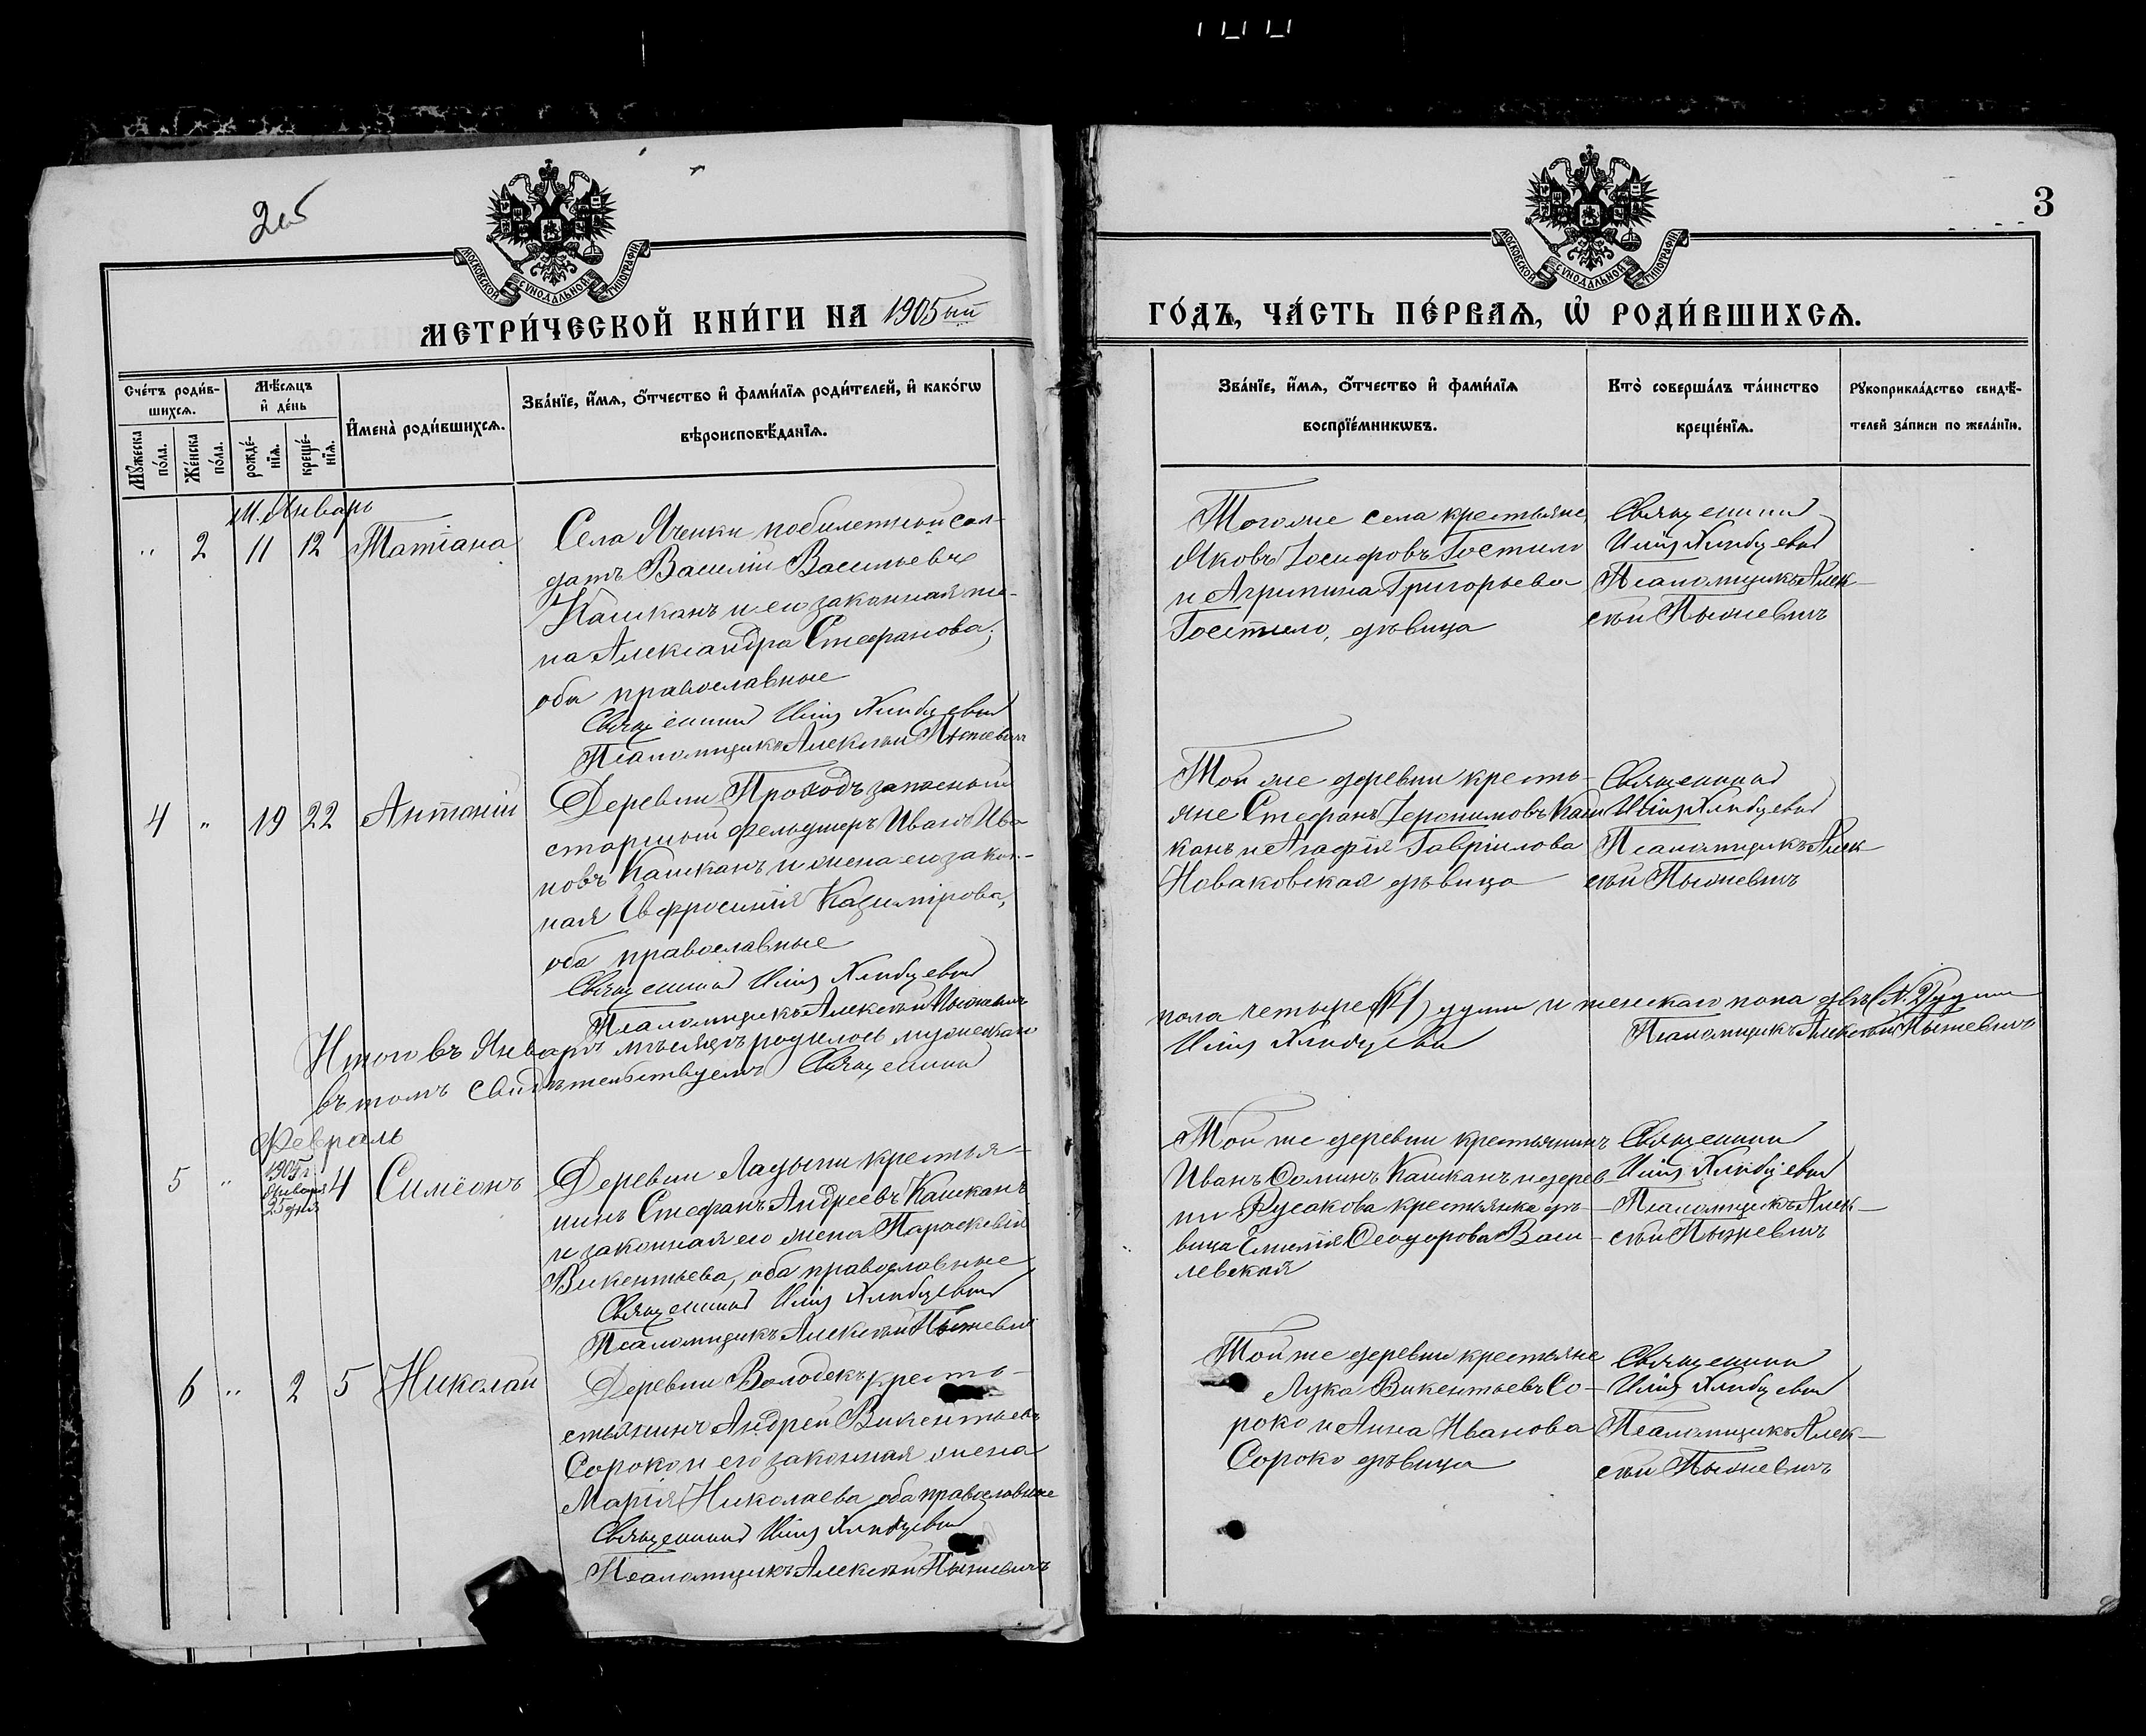 265
3
МОСКОВСКОЙ СУНОДАЛЬНОЙ ТИПОГРАФІИ
МОСКОВСКОЙ СУНОДАЛЬНОЙ ТИПОГРАФІИ
МЕТРИ́ЧЕСКОЙ КНИ́ГИ НА 1905ый
ГО́ДЪ, ЧА́СТЬ ПЕ́РВАѦ, Ѡ҆ РОДИ́ВШИХСѦ.
Сче́тъ роди́в-
шихсѧ.
Мѹ́жеска по́ла.
Же́нска по́ла.
Мѣ́сѧцъ
и҆ де́нь
рожде́-
нїѧ.
креще́-
нїѧ.
И҆мена̀ роди́вшихсѧ.
Зва́нїе, и҆́мѧ, ѻ҆́тчество и҆ фами́лїѧ роди́телей, и҆ како́гѡ
вѣроисповѣ́данїѧ.
Зва́нїе, и҆́мѧ, ѻ҆́тчество и҆ фами́лїѧ
воспрїе́мникѡвъ.
Кто̀ соверша́лъ та́инство
креще́нїѧ.
Рѹкоприкла́дство свидѣ́-
телей за́писи по жела́нїю.
М. Январь
" 2 11 12 Татіана
Села Яченки побилетный сол-
датъ Василій Васильевъ
Кашканъ и его законная же-
на Александра Стефанова;
оба православные
Священникъ Илія
Псаломщикъ Алексѣй Пыжевичъ
Того же села крестьяне
Яковъ Іосифовъ Гостило
и Агрипина Григорьева
Гостило, дѣвица
Священникъ
Илія
Псаломщикъ Алек-
сѣй Пыжевичъ
4 " 19 22 Антоній
Деревни Проходъ запасный
старшій фельдшеръ Иванъ Ива
новъ Кашканъ и жена его закон-
ная Евфросинія Казимірова,
оба православные
Священникъ Илія
Псаломщикъ Алексѣй Пыжевичъ
Той же деревни кресть-
яне Стефанъ Іеронимовъ Каш
канъ и Агафія Гавріилова
Новаковская дѣвица
Священникъ
Илія
Псаломщикъ Алек-
сѣй Пыжевичъ
Итого въ Январѣ мѣсяцѣ родилось мужескаго
пола четыре (4) души и женскаго пола двѣ (№ 2) души
въ томъ свидѣтельствуемъ Священникъ
Илія
Псаломщикъ Алексѣй Пыжевичъ
Февраль
5 " 1905 г. Января 25 дня 4 Симеонъ
Деревни Ладыги крестья-
нинъ Стефанъ Андреевъ Кашканъ
и законная его жена Параскевія
Викентьева, оба православные
Священникъ Илія
Псаломщикъ Алексѣй Пыжевичъ
Той же деревни крестьянинъ
Иванъ Ѳоминъ Кашканъ и дерев-
ни Русакова крестьянка дѣ-
вица Емилія Ѳеодорова Васи-
левская
Священникъ
Илія
Псаломщикъ Алек-
сѣй Пыжевичъ
6 " 2 5 Николай
Деревни Володекъ кресть-
стьянинъ Андрей Викентьевъ
Сороко и его законная жена
Марія Николаева оба православные
Священникъ Илія
Псаломщикъ Алексѣй Пыжевичъ
Той же деревни крестьяне
Лука Викентьевъ Со-
роко и Анна Иванова
Сороко дѣвица
Священникъ
Илія
Псаломщикъ Алек-
сѣй Пыжевичъ